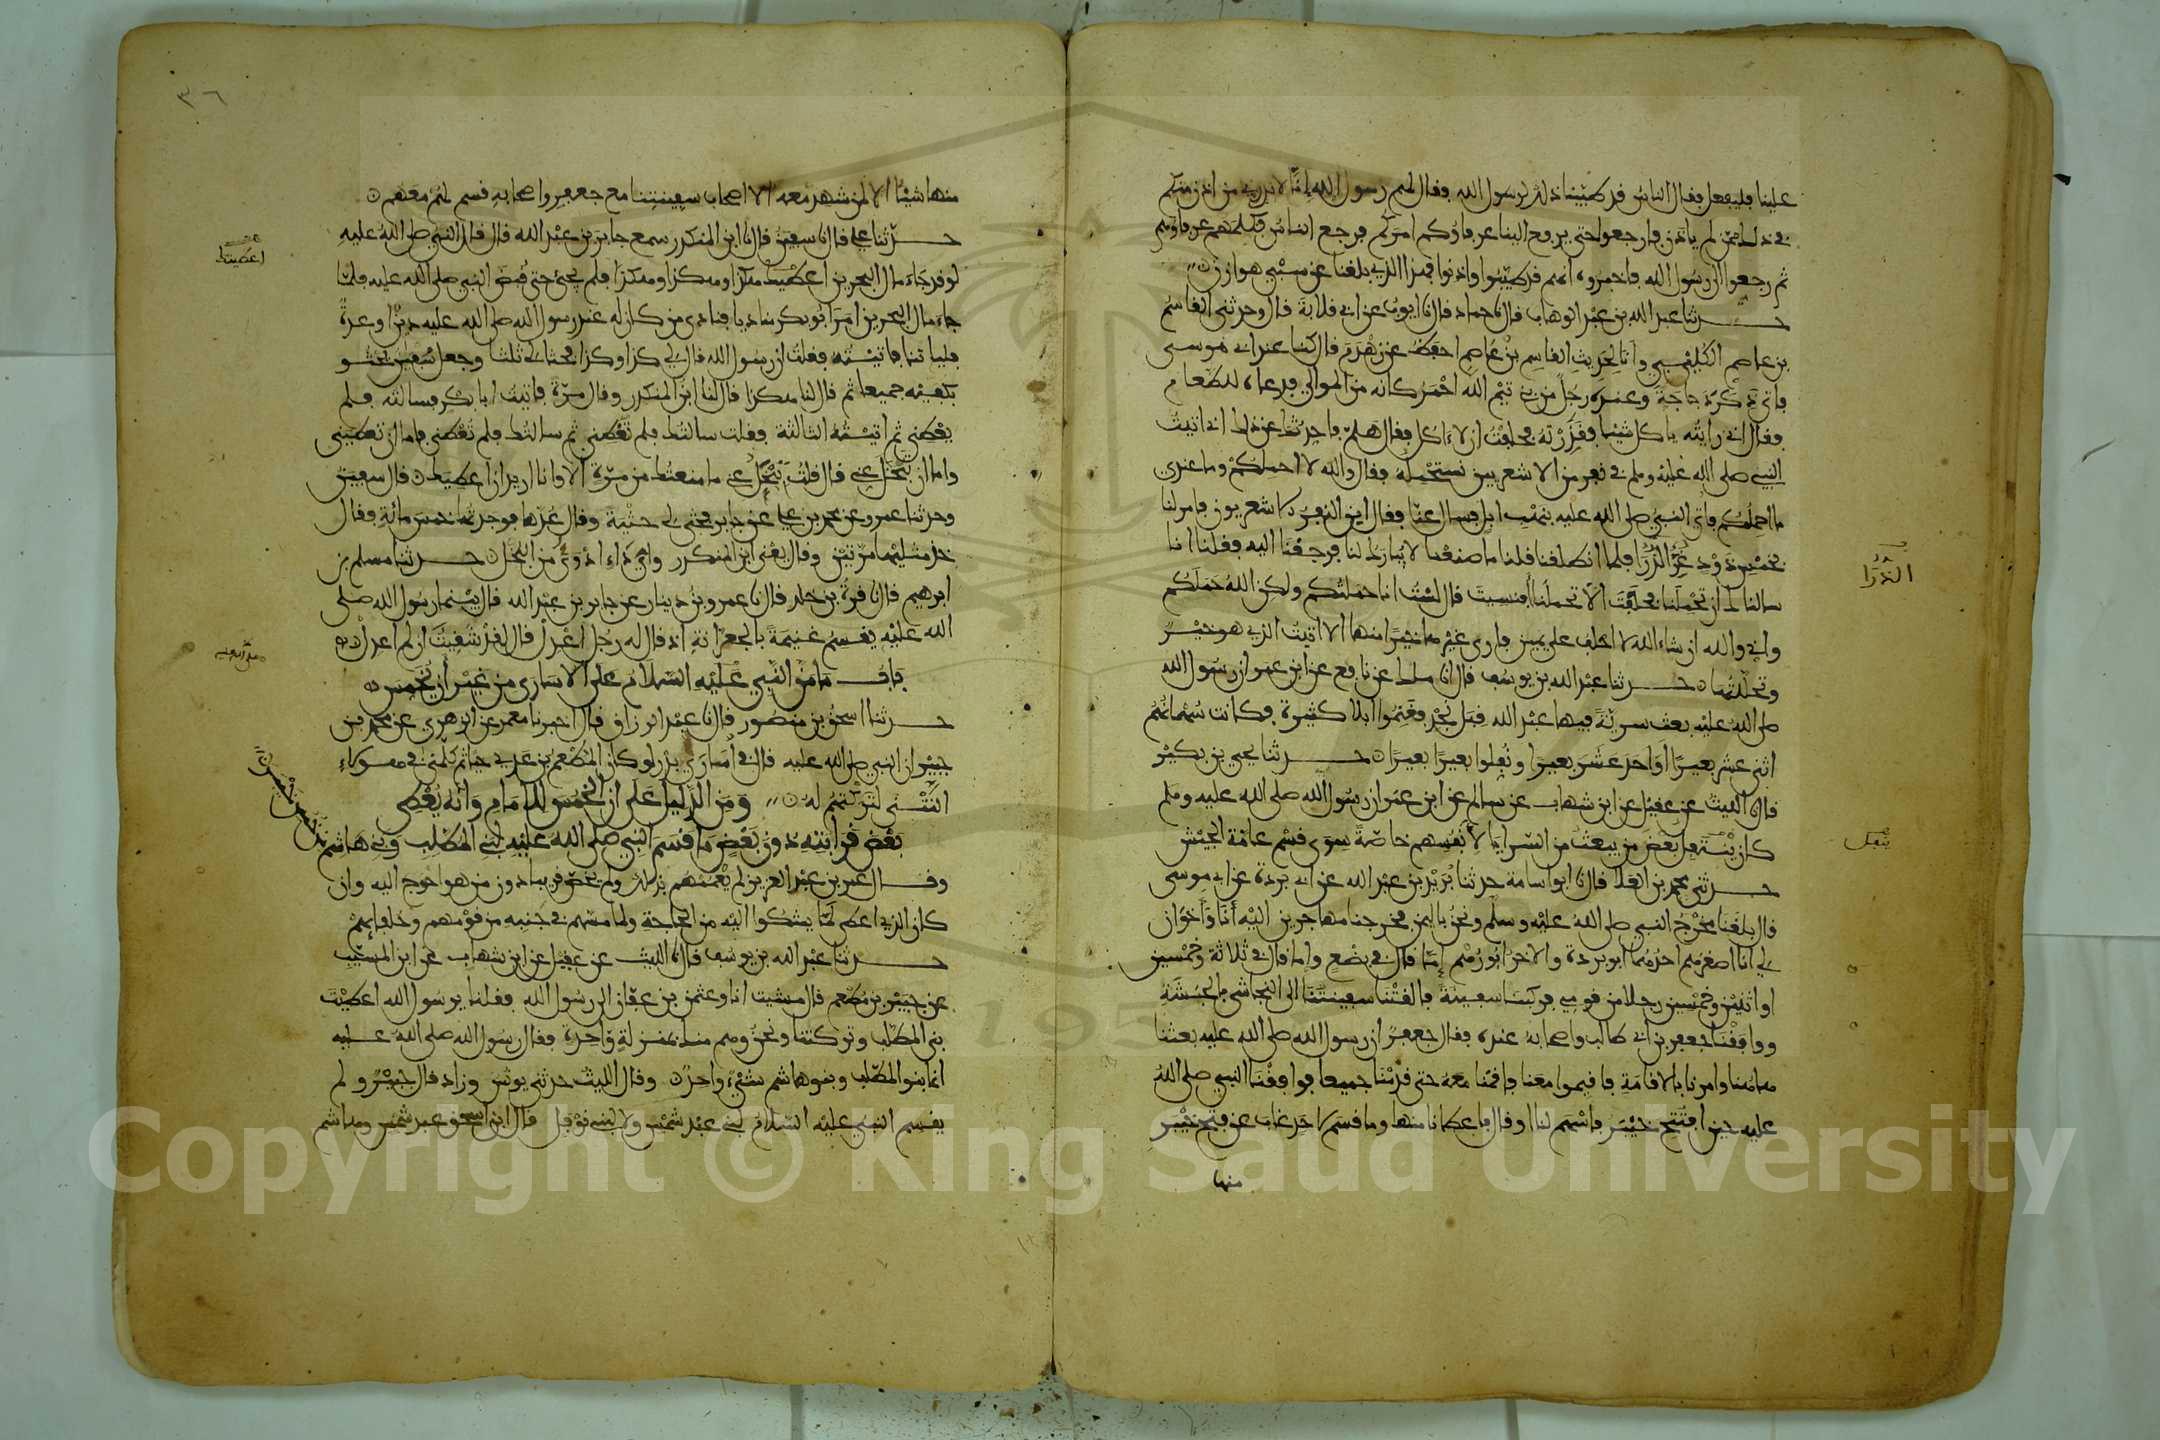 علينا فليفعل فقال الناس قد طيبنا ذلك يرسول الله فقال لهم رسول الله انا لا ندري من اذن منكم
في ذلك ممن لم ياذن فارجعوا حتى يرفع الينا عرفاؤكم امركم فرجع الناس فكلمهم عرفاؤهم
ثم رجعوا الى رسول الله فاخبروه انهم قد طيبوا واذنوا فهذا الذي بلغنا عن سبي هوازن
حدثنا عبد الله بن عبد الوهاب قال نا حماد قال نا ايوب عن ابي قلابة قال وحدثني القاسم
بن عاصم الكليبي وانا لحديث القاسم بن عاصم احفظ عن زهدم قال كنا عند ابي موسى
فاتي ذكر دجاجة وعنده رجل من بني تيم الله احمر كانه من الموالي فدعاه للطعام
فقال اني رايته ياكل شيئا فقذرته فحلفت ان لا ءاكل فقال هلم فاحدثك عن ذلك اني اتيت
النبي صلى الله عليه وسلم في نفر من الاشعريين نستحمله فقال والله لا احملكم وما عندي
ما احملكم فاتي النبي صلى الله عليه بنهب ابل فسال عنا فقال اين النفر الاشعريون فامر لنا
بخمس ذود غر الذرا فلما انطلقنا قلنا ما صنعنا لا يبارك لنا فرجعنا اليه فقلنا انا
سالناك ان تحملنا فحلفت الا تحملنا افنسيت قال لست انا حملتكم ولكن الله حملكم
واني والله ان شاء الله لا احلف على يمين فارى غيرها خيرا منها الا اتيت الذي هو خير
وتحللتها حدثنا عبد الله بن يوسف قال انا ملك عن نافع عن ابن عمر ان رسول الله
صلى الله عليه بعث سرية فيها عبد الله قبل نجد فغنموا ابلا كثيرة فكانت سهمانهم
اثني عشر بعيرا او احد عشر بعيرا ونفلوا بعيرا بعيرا حدثنا يحيى بن بكير
قال نا الليث عن عقيل عن ابن شهاب عن سالم عن ابن عمر ان رسول الله صلى الله عليه وسلم
كان ينفل بعض من يبعث من السرايا لانفسهم خاصة سوى قسم عامة الجيش
حدثني محمد بن العلا قال نا ابو اسامة حدثنا بريد بن عبد الله عن ابي بردة عن ابي موسى
قال بلغنا مخرج النبي صلى الله عليه وسلم ونحن باليمن فخرجنا مهاجرين اليه انا واخوان
لي انا اصغرهم احدهما ابو بردة والاخر ابو رهم اما قال في بضع واما قال في ثلاثة وخمسين
او اثنين وخمسين رجلا من قومي فركبنا سفينة فالقتنا سفينتنا الى النجاشي بالحبشة
ووافقنا جعفر بن ابي طالب واصحابه عنده فقال جعفر ان رسول الله صلى الله عليه بعثنا
هاهنا وامرنا بالاقامة فاقيموا معنا فاقمنا معه حتى قدمنا جميعا فوافقنا النبي صلى الله
عليه حين افتتح خيبر فاسهم لنا او قال فاعطانا منها وما قسم لاحد غاب عن فتح خيبر
منها
الذرا
ينفل
٣٦
منها شيئا الا لمن شهد معه الا اصحاب سفينتنا مع جعفر واصحابه قسم لهم معهم
حدثنا علي قال نا سفين قال نا ابن المنكدر سمع جابر بن عبد الله قال قال النبي صلى الله عليه
لو قد جاء مال البحرين اعطيتك هكذا وهكذا وهكذا فلم يجئ حتى قبض النبي صلى الله عليه فلما
جاء مال البحرين امر ابو بكر مناديا فنادى من كان له عند رسول الله صلى الله عليه دين او عدة
فلياتنا فاتيته فقلت ان رسول الله قال لي كذا وكذا فحثا لي ثلثا وجعل سفين يحثو
بكفيه جميعا ثم قال لنا هكذا قال لنا ابن المنكدر وقال مرة فاتيت ابا بكر فسالته فلم
يعطني ثم اتيته الثالثة فقلت سالتك فلم تعطني ثم سالتك فلم تعطني فاما ان تعطيني
واما ان تبخل عني قال قلت تبخل عني ما منعتك من مرة الا وانا اريد ان اعطيك قال سفين
وحدثنا عمرو عن محمد بن علي عن جابر فحثى لي حثية وقال عدها فوجدتها خمس مائة فقال
خذ مثليها مرتين وقال يعني ابن المنكدر واي داء ادوى من البخل حدثنا مسلم بن
ابرهيم قال نا قرة بن خلد قال نا عمرو بن دينار عن جابر بن عبد الله قال بينما رسول الله صلى
الله عليه يقسم غنيمة بالجعرانة اذ قال له رجل اعدل قال لقد شقيت ان لم اعدل
باب ما من النبي عليه السلام على الاسارى من غير ان يخمس
حدثنا اسحق بن منصور قال نا عبد الرزاق قال اخبرنا معمر عن الزهري عن محمد بن
جبير ان النبي صلى الله عليه قال في اسارى بدر لو كان المطعم بن عدي حيا ثم كلمني في هؤلاء
النتنى لتركتهم له ومن الدليل على ان الخمس للامام وانه يعطي
بعض قرابته دون بعض ما قسم النبي صلى الله عليه لبني المطلب وبني هاشم
من خمس خيبر
وقال عمر بن عبد العزيز لم يعمهم بذلك ولم يخص قريبا دون من هو احوج اليه وان
كان الذي اعطى لما يشكوا اليه من الحاجة ولما مسهم في جنبه من قومهم وحلفائهم
حدثنا عبد الله بن يوسف قال نا الليث عن عقيل عن ابن شهاب عن ابن المسيب
عن جبير بن مطعم قال مشيت انا وعثمن بن عفان الى رسول الله فقلنا يرسول الله اعطيت
بني المطلب وتركتنا ونحن وهم منك بمنزلة واحدة فقال رسول الله صلى الله عليه
انما بنو المطلب وبنو هاشم شيء واحد وقال الليث حدثني يونس وزاد قال جبير ولم
يقسم النبي عليه السلام لبني عبد شمس ولا لبني نوفل قال ابن اسحق عبد شمس وهاشم
اعطيتك
Copyright © King Saud University